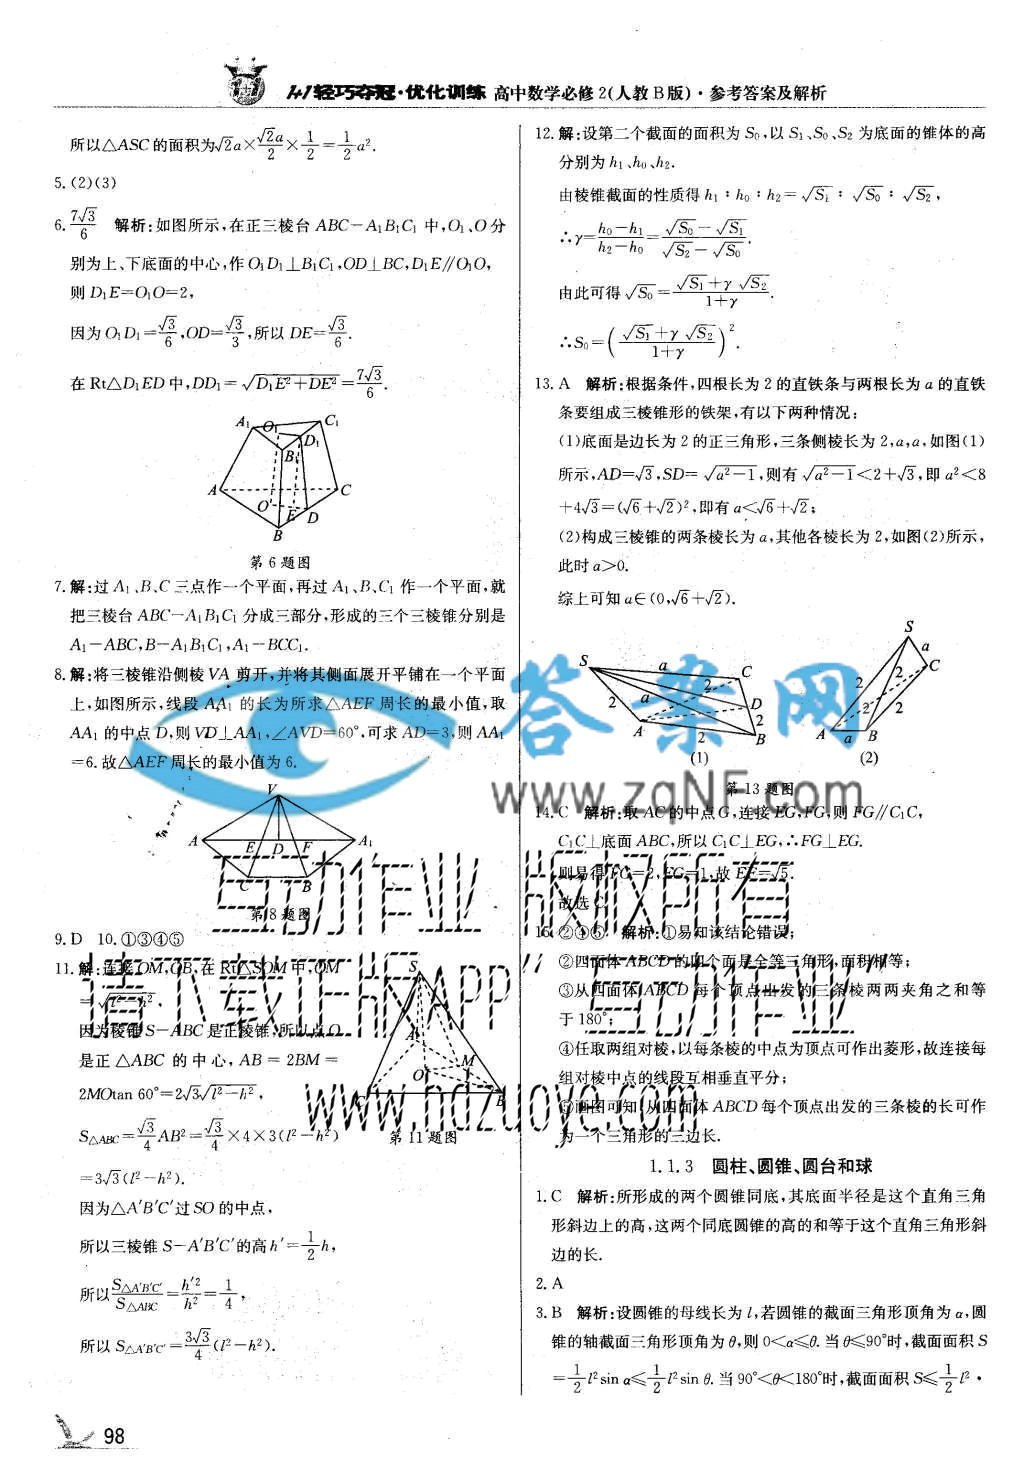 1+1轻巧夺冠·优化训练 高中数学必修2(人教B版)·参考答案及解析
所以△ASC的面积为√2a×√2a/2×1/2=1/2a².
5.(2)(3)
6.7√3/6 解析:如图所示,在正三棱台ABC-A₁B₁C₁中,O₁、O分
别为上、下底面的中心,作O₁D₁⊥B₁C₁,OD⊥BC,D₁E∥O₁O,
则D₁E=O₁O=2,
因为O₁D₁=√3/6,OD=√3/3,所以DE=√3/6.
在Rt△D₁ED中,DD₁=√(D₁E²+DE²)=7√3/6.
A₁ O₁ C₁
D₁
B₁
A C
O E D
B
第6题图
7.解:过A₁、B、C三点作一个平面,再过A₁、B、C₁作一个平面,就
把三棱台ABC-A₁B₁C₁分成三部分,形成的三个三棱锥分别是
A₁-ABC,B-A₁B₁C₁,A₁-BCC₁.
8.解:将三棱锥沿侧棱VA剪开,并将其侧面展开平铺在一个平面
上,如图所示,线段AA₁的长为所求△AEF周长的最小值,取
AA₁的中点D,则VD⊥AA₁,∠AVD=60°,可求AD=3,则AA₁
=6.故△AEF周长的最小值为6.
V
A E D F A₁
C B
第8题图
9.D 10.①③④⑤
11.解:连接OM,OB,在Rt△SOM中,OM
=√(l²-h²),
因为棱锥S-ABC是正棱锥,所以点O
是正△ABC的中心,AB=2BM=
2MOtan 60°=2√3√(l²-h²),
S△ABC=√3/4AB²=√3/4×4×3(l²-h²)
=3√3(l²-h²).
S
A
O M
C B
第11题图
因为△A′B′C′过SO的中点,
所以三棱锥S-A′B′C′的高h′=1/2h,
所以S△A′B′C′/S△ABC=h′²/h²=1/4,
所以S△A′B′C′=3√3/4(l²-h²).
98
12.解:设第二个截面的面积为S₀,以S₁、S₀、S₂为底面的锥体的高
分别为h₁、h₀、h₂.
由棱锥截面的性质得h₁:h₀:h₂=√S₁:√S₀:√S₂,
∴γ=(h₀-h₁)/(h₂-h₀)=(√S₀-√S₁)/(√S₂-√S₀).
由此可得√S₀=(√S₁+γ√S₂)/(1+γ).
∴S₀=((√S₁+γ√S₂)/(1+γ))².
13.A 解析:根据条件,四根长为2的直铁条与两根长为a的直铁
条要组成三棱锥形的铁架,有以下两种情况:
(1)底面是边长为2的正三角形,三条侧棱长为2,a,a,如图(1)
所示,AD=√3,SD=√(a²-1),则有√(a²-1)<2+√3,即a²<8
+4√3=(√6+√2)²,即有a<√6+√2;
(2)构成三棱锥的两条棱长为a,其他各棱长为2,如图(2)所示,
此时a>0.
综上可知a∈(0,√6+√2).
S a C
2 a 2 D
A 2 B 2
(1)
S a C
2 2 2
A a B 2
(2)
第13题图
14.C 解析:取AC的中点G,连接EG,FG,则FG∥C₁C,
C₁C⊥底面ABC,所以C₁C⊥EG,∴FG⊥EG.
则易得FG=2,EG=1,故EF=√5.
故选C.
15.②④⑤ 解析:①易知该结论错误;
②四面体ABCD的四个面是全等三角形,面积相等;
③从四面体ABCD每个顶点出发的三条棱两两夹角之和等
于180°;
④任取两组对棱,以每条棱的中点为顶点可作出菱形,故连接每
组对棱中点的线段互相垂直平分;
⑤画图可知,从四面体ABCD每个顶点出发的三条棱的长可作
为一个三角形的三边长.
1.1.3 圆柱、圆锥、圆台和球
1.C 解析:所形成的两个圆锥同底,其底面半径是这个直角三角
形斜边上的高,这两个同底圆锥的高的和等于这个直角三角形斜
边的长.
2.A
3.B 解析:设圆锥的母线长为l,若圆锥的截面三角形顶角为α,圆
锥的轴截面三角形顶角为θ,则0<α≤θ.当θ≤90°时,截面面积S
=1/2l²sin α≤1/2l²sin θ.当90°<θ<180°时,截面面积S≤1/2l²·
答案网
www.zqNF.com
互动作业 版权所有
请下载正版APP“互动作业”
www.hdzuoye.com